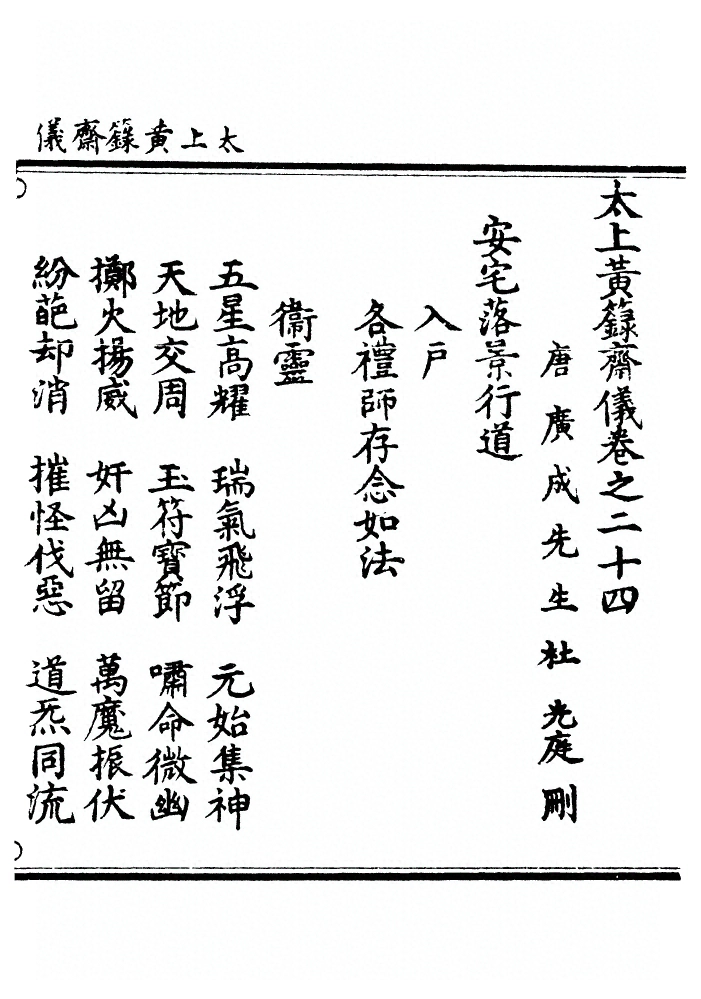 太上黄籙齋儀
太上黄籙齋儀卷之二十四
唐廣成先生杜光庭刪
安宅落景行道
入戶
各禮師存念如法
衞靈
五星高耀 瑞氣飛浮 元始集神
天地交周 玉符寶節 嘯命微幽
擲火揚威 奸凶無留 萬魔振伏
紛葩却消 摧怪伐惡 道炁同流